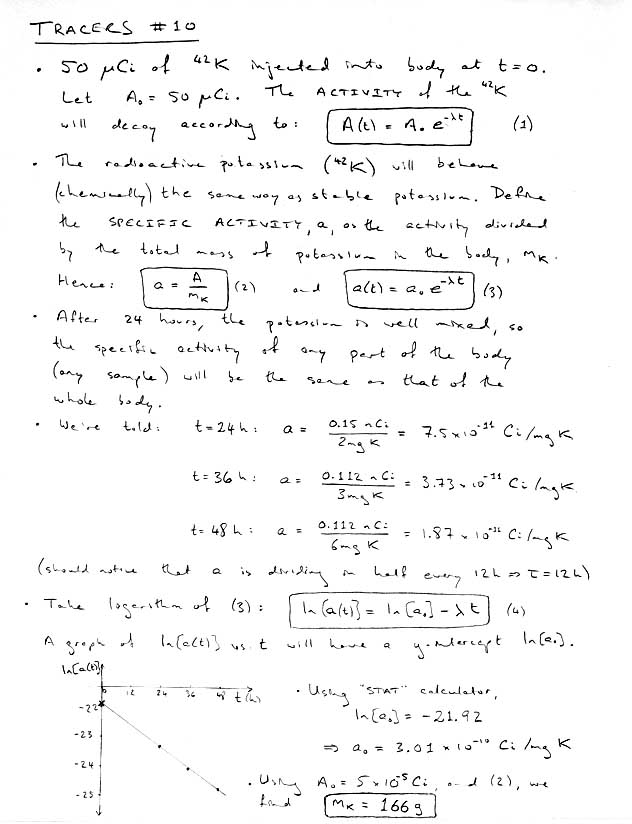 TRACERS #10
• 50 μCi of ⁴²K injected into body at t=0.
Let A₀ = 50 μCi. The ACTIVITY of the ⁴²K
will decay according to: A(t) = A₀ e^-λt (1)
• The radioactive potassium (⁴²K) will behave
(chemically) the same way as stable potassium. Define
the SPECIFIC ACTIVITY, a, as the activity divided
by the total mass of potassium in the body, mK.
Hence: a = A/mK (2) and a(t) = a₀ e^-λt (3)
• After 24 hours, the potassium is well mixed, so
the specific activity of any part of the body
(any sample) will be the same as that of the
whole body.
• We're told: t=24h: a = 0.15 nCi / 2mg K = 7.5×10⁻¹¹ Ci/mg K
t=36h: a = 0.112 nCi / 3mg K = 3.73×10⁻¹¹ Ci/mg K
t=48h: a = 0.112 nCi / 6mg K = 1.87×10⁻¹¹ Ci/mg K
(should notice that a is dividing in half every 12h ⇒ τ=12h)
• Take logarithm of (3): ln[a(t)] = ln[a₀] - λt (4)
A graph of ln[a(t)] vs. t will have a y-intercept ln[a₀].
ln[a(t)]
0 12 24 36 48 t(h)
-22
-23
-24
-25
• Using "STAT" calculator,
ln[a₀] = -21.92
⇒ a₀ = 3.01 × 10⁻¹⁰ Ci/mg K
• Using A₀ = 5×10⁻⁵ Ci, and (2), we
find mK = 166g